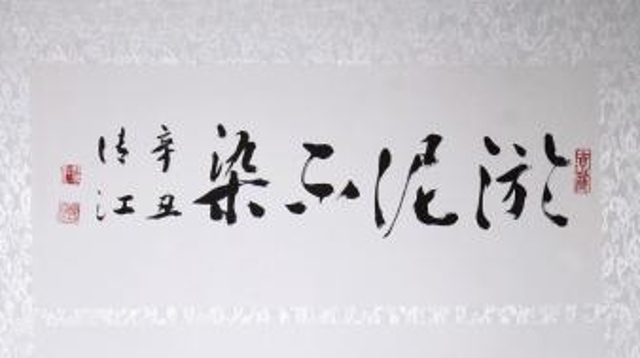 淤泥不染
辛丑
清江